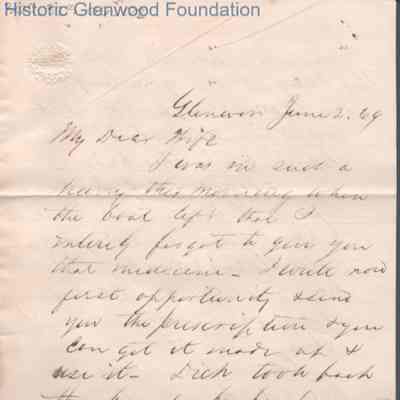 Historic Glenwood Foundation
Glencoe June 2. 69
My Dear Wife
I was in such a
hurry this morning when
the boat left that I
entirely forgot to give you
that medicine - I write now
first opportunity & send
you the prescription & you
can get it made up &
use it - Dick took back